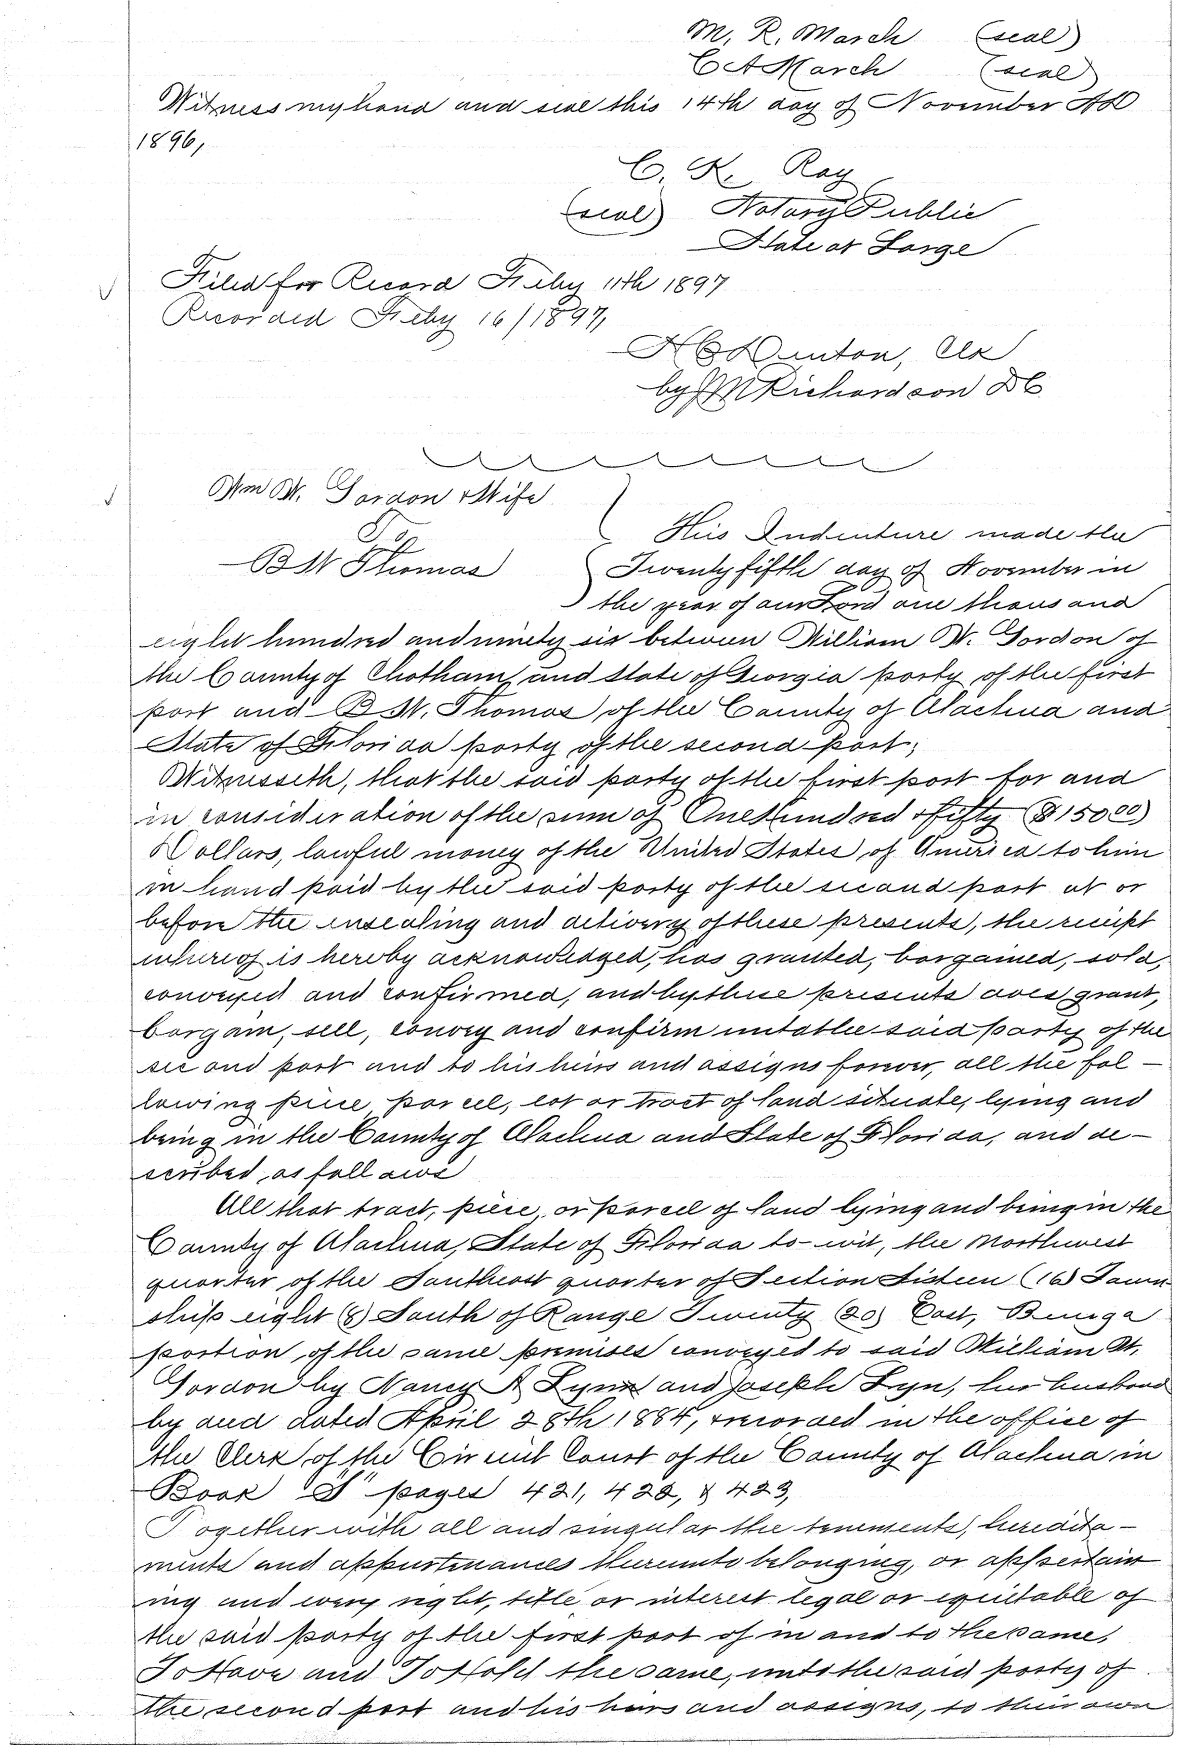 M. R. March (seal)
C A March (seal)
Witness my hand and seal this 14th day of November AD
1896,
C. K. Ray
(seal) Notary Public
State at Large
Filed for Record Feby 11th 1897
Recorded Feby 16/1897,
H C Denton, Clk
by J M Richardson DC
Wm W. Gordon & Wife
To
B W Thomas
This Indenture made the
Twenty fifth day of November in
the year of our Lord one thousand
eight hundred and ninety six between William W. Gordon of
the County of Chatham, and State of Georgia party of the first
part and B W. Thomas of the County of Alachua and
State of Florida party of the second part;
Witnesseth, that the said party of the first part for and
in consideration of the sum of One Hundred & fifty ($150 00)
Dollars, lawful money of the United States of America to him
in hand paid by the said party of the second part at or
before the ensealing and delivery of these presents, the receipt
whereof is hereby acknowledged, has granted, bargained, sold,
conveyed and confirmed, and by these presents does grant,
bargain, sell, convey and confirm unto the said party of the
second part and to his heirs and assigns forever, all the fol-
lowing piece, parcel, lot or tract of land situate, lying and
being in the County of Alachua and State of Florida, and de-
scribed, as follows
All that tract, piece, or parcel of land lying and being in the
County of Alachua, State of Florida to-wit, the Northwest
quarter of the Southeast quarter of Section Sixteen (16) Town
ship eight (8) South of Range Twenty (20) East, Being a
portion of the same premises conveyed to said William W,
Gordon by Nancy A Lynn and Joseph Lyn, her husband
by deed dated April 28th 1884, & recorded in the office of
the Clerk of the Circuit Court of the County of Alachua in
Book "S" pages 421, 422, & 423,
Together with all and singular the tenements, heredita-
ments and appurtenances thereunto belonging, or appertain
ing and every right, title or interest legal or equitable of
the said party of the first part of in and to the same,
To Have and To Hold the same, unto the said party of
the second part and his heirs and assigns, to their own